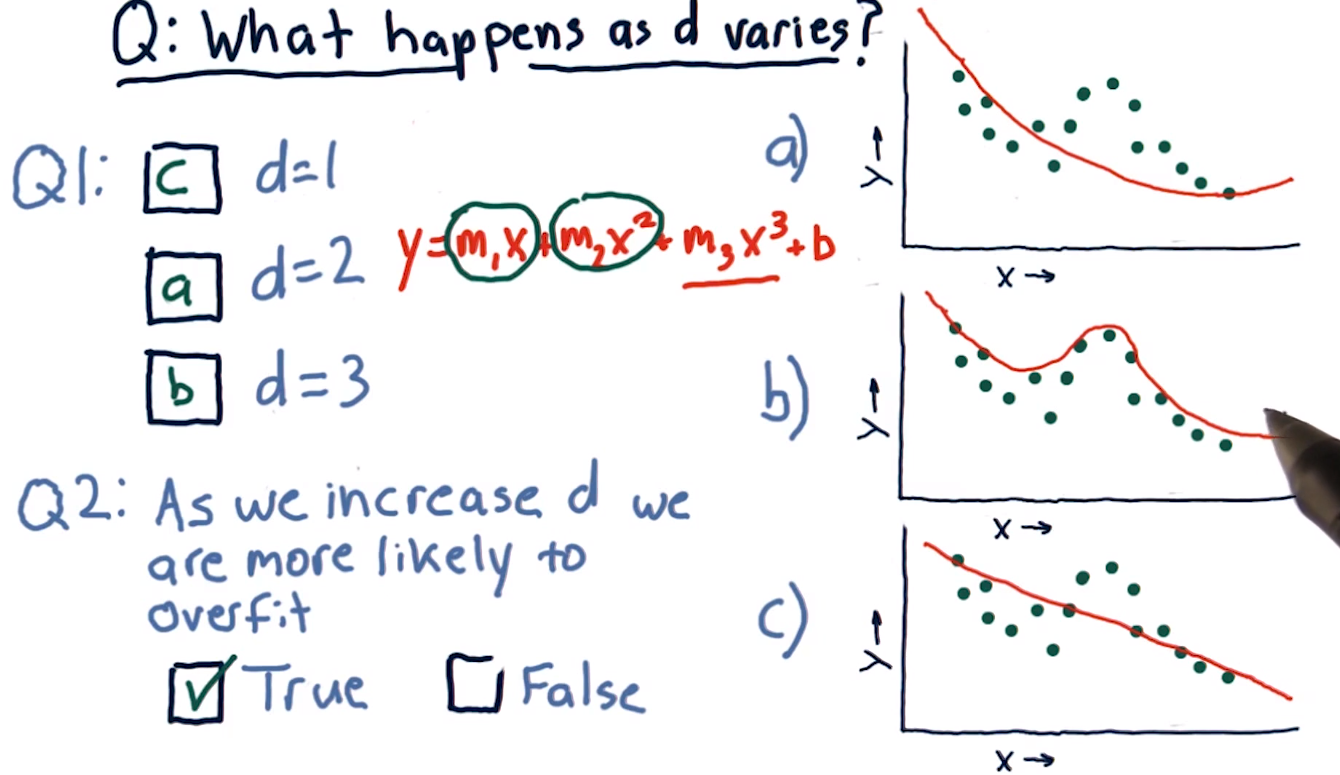 Q: What happens as d varies?
Q1: c d=1
a d=2
y=m₁x+m₂x²+m₃x³+b
b d=3
Q2: As we increase d we
are more likely to
overfit
✓ True False
a)
Y→
X→
b)
Y→
X→
c)
Y→
X→